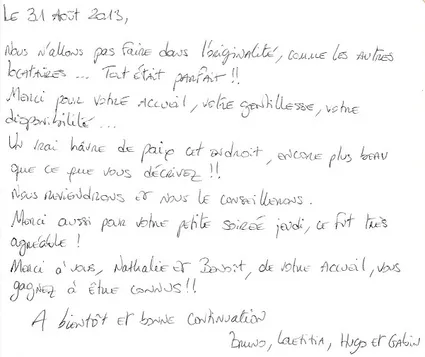 Le 31 Août 2013,
Nous n'allons pas faire dans l'originalité, comme les autres
locataires ... Tout était parfait !!
Merci pour votre accueil, votre gentillesse, votre
disponibilité ...
Un vrai hâvre de paix cet endroit, encore plus beau
que ce que vous décrivez !!
Nous reviendrons et nous le conseillerons.
Merci aussi pour votre petite soirée jeudi, ce fut très
agréable !
Merci à vous, Nathalie et Benoit, de votre accueil, vous
gagnez à être connus !!
A bientôt et bonne continuation
Bruno, Laetitia, Hugo et Gabin